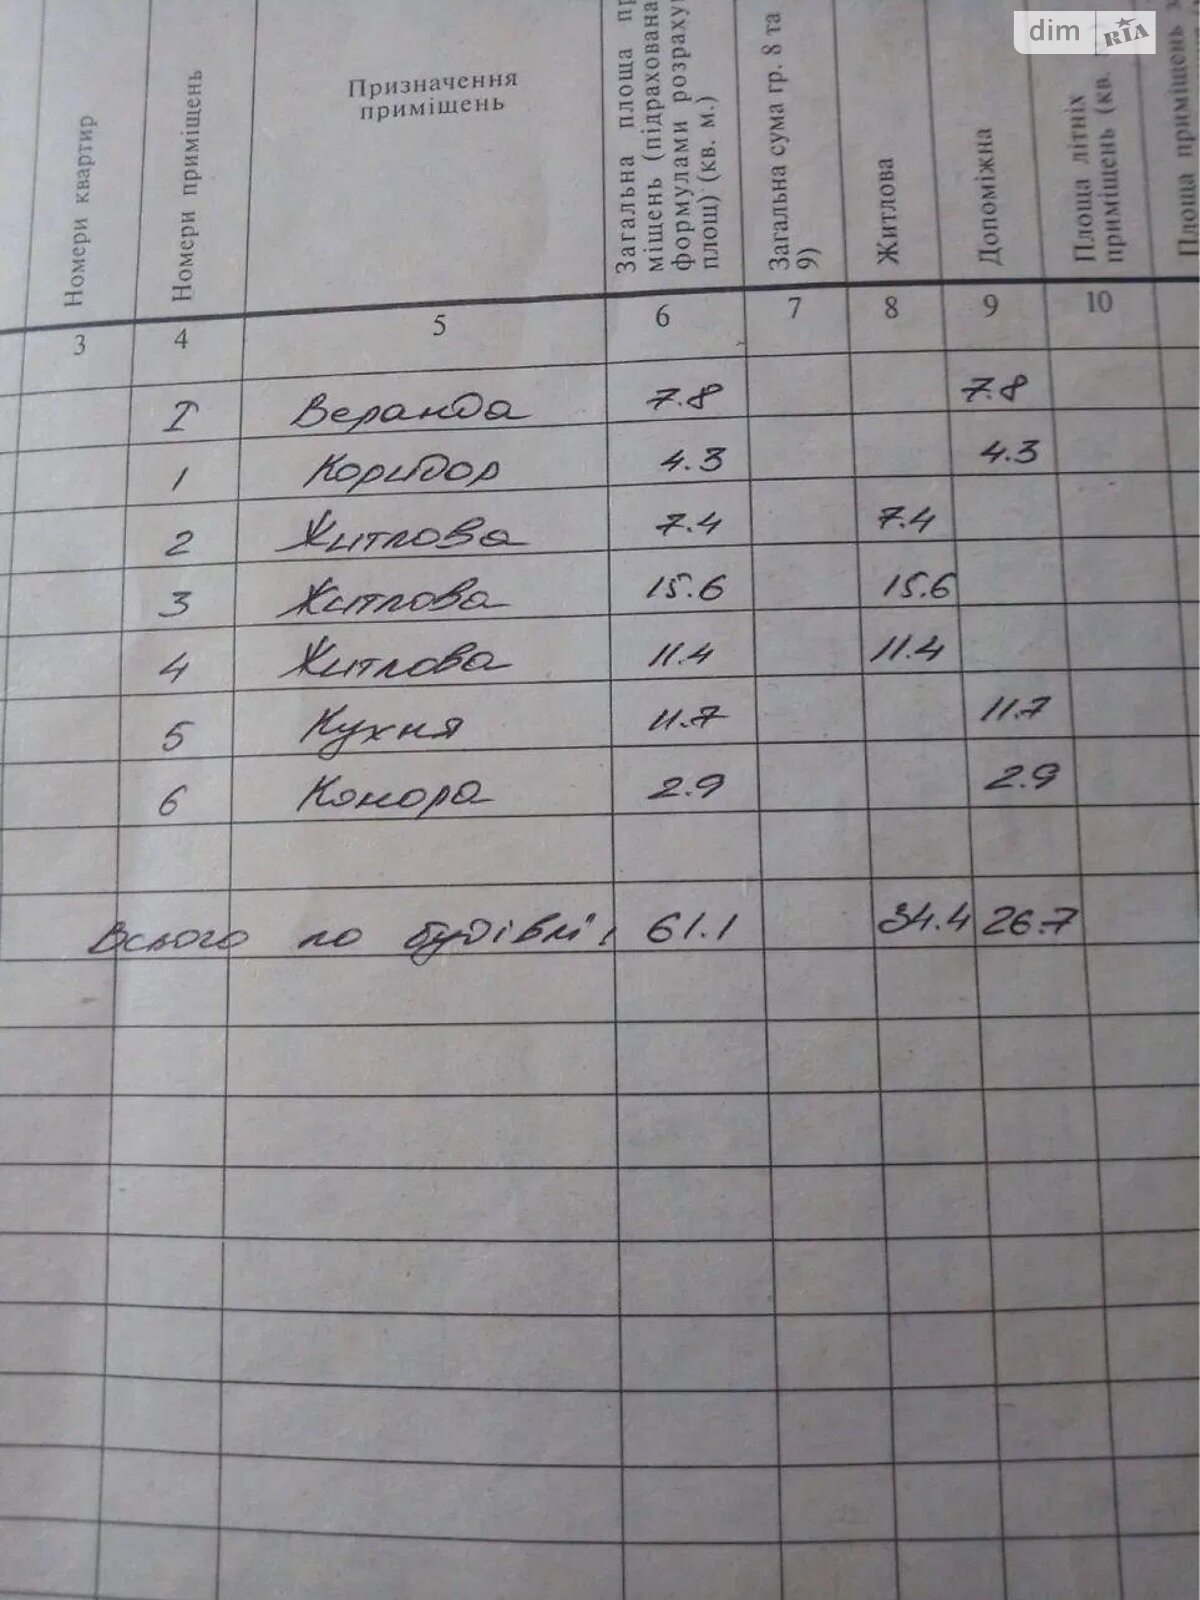 dim RIA
Номери квартир
Номери приміщень
Призначення
приміщень
Загальна площа пр
міщень (підрахована
формулами розраху
площ) (кв. м.)
Загальна сума гр. 8 та
9)
Житлова
Допоміжна
Площа літніх
приміщень (кв.
Площа приміщень
3 4 5 6 7 8 9 10
I Веранда 7.8 7.8
1 Коридор 4.3 4.3
2 Житлова 7.4 7.4
3 Житлова 15.6 15.6
4 Житлова 11.4 11.4
5 Кухня 11.7 11.7
6 Комора 2.9 2.9
Всього по будівлі: 61.1 34.4 26.7